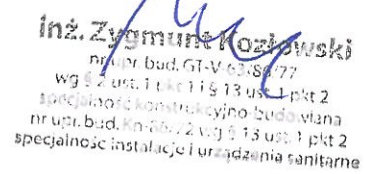 inż. Zygmunt Kozłowski
nr upr. bud. GT-V-63/88/77
wg § 2 ust. 1 pkt 1 i § 13 ust. 1 pkt 2
specjalność konstrukcyjno-budowlana
nr upr. bud. 72 wg § 13 ust. 1 pkt 2
specjalność instalacje i urządzenia sanitarne